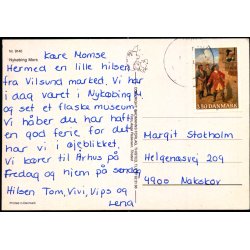 Nr. 9140
Nykøbing Mors
Kære Momse
Hermed en lille hilsen
fra Vilsund marked. Vi har
i dag været i Nykøbing M
og set et flaske museum
Vi håber du har haft
en god ferie for det
har vi i øjeblikket.
Vi kører til Århus på
Fredag og hjem på søndag
Hilsen Tom, Vivi, Vips og
Lena
3.50 DANMARK
Margit Stokholm
Helgenæsvej 209
4900 Nakskov